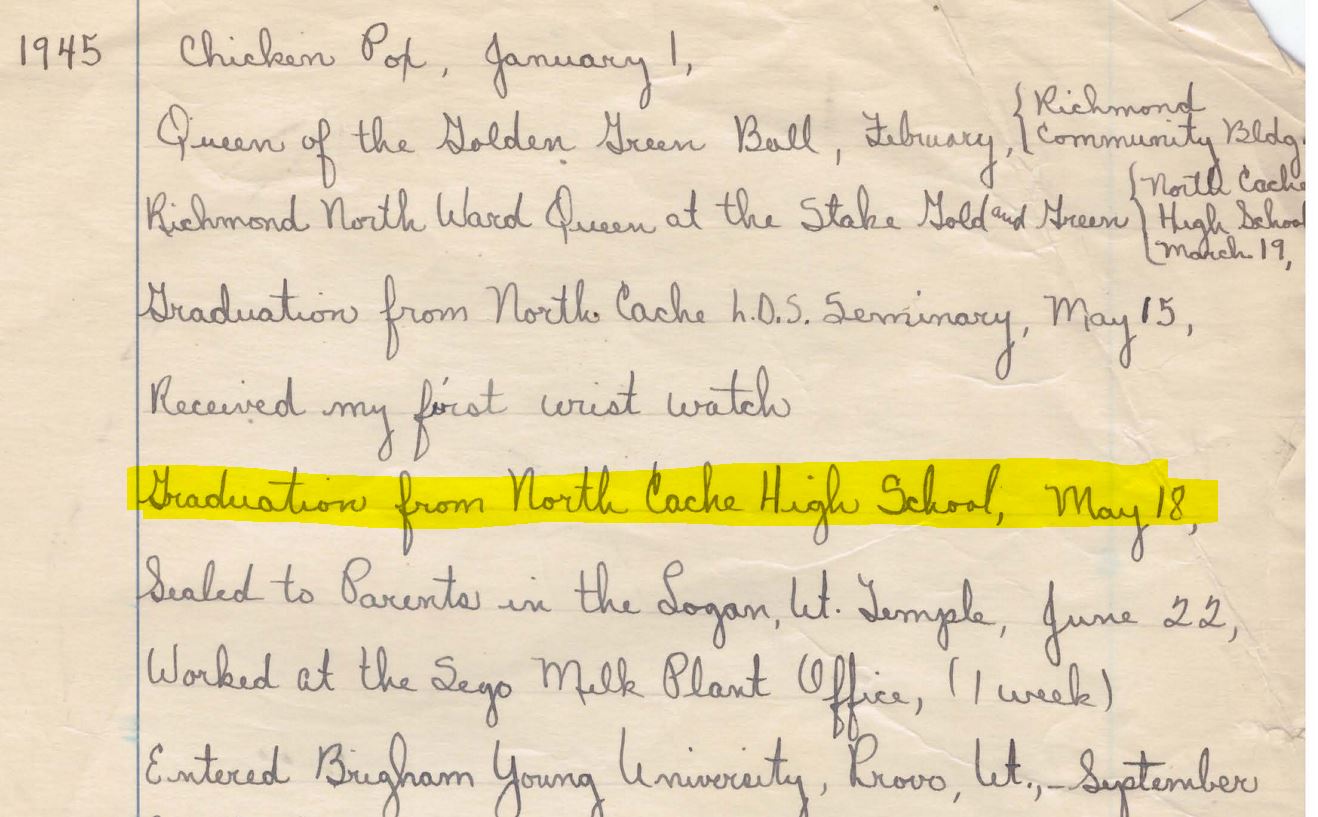 1945 Chicken Pox, January 1,
Queen of the Golden Green Ball, February, {Richmond
Community Bldg.
Richmond North Ward Queen at the Stake Gold and Green {North Cache
High School
March 19,
Graduation from North Cache L.D.S. Seminary, May 15,
Received my first wrist watch
Graduation from North Cache High School, May 18,
Sealed to Parents in the Logan, Ut. Temple, June 22,
Worked at the Sego Milk Plant Office, (1 week)
Entered Brigham Young University, Provo, Ut., - September